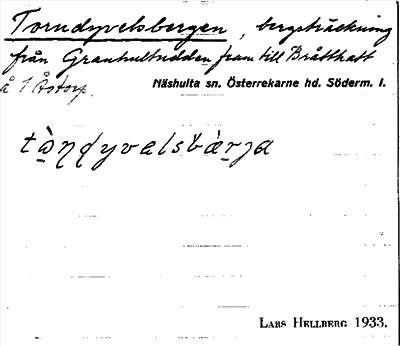 Torndyvelsbergen, bergsträckning
från Granhultudden fram till Bråtthatt
å 1 Åstorp.
Näshulta sn. Österrekarne hd. Söderm. l.
LARS HELLBERG 1933.